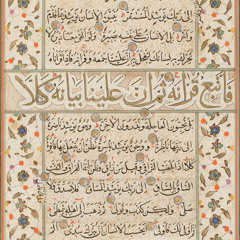 إلى ربك يومئذ المستقر ينبؤا الإنسان يومئذ بما قدم
وأخر بل الإنسان على نفسه بصيرة ولو ألقى معاذيره لا
تحرك به لسانك لتعجل به إن علينا جمعه وقرآنه فإذا قرأناه
فاتبع قرآنه ثم إن علينا بيانه كلا
بل تحبون العاجلة وتذرون الآخرة وجوه يومئذ ناضرة
إلى ربها ناظرة ووجوه يومئذ باسرة تظن أن يفعل بها فاقرة
كلا إذا بلغت التراقي وقيل من راق وظن أنه الفراق والتفت
الساق بالساق إلى ربك يومئذ المساق فلا صدق ولا
صلى ولكن كذب وتولى ثم ذهب إلى أهله يتمطى
أولى لك فأولى ثم أولى لك فأولى أيحسب الإنسان أن يترك